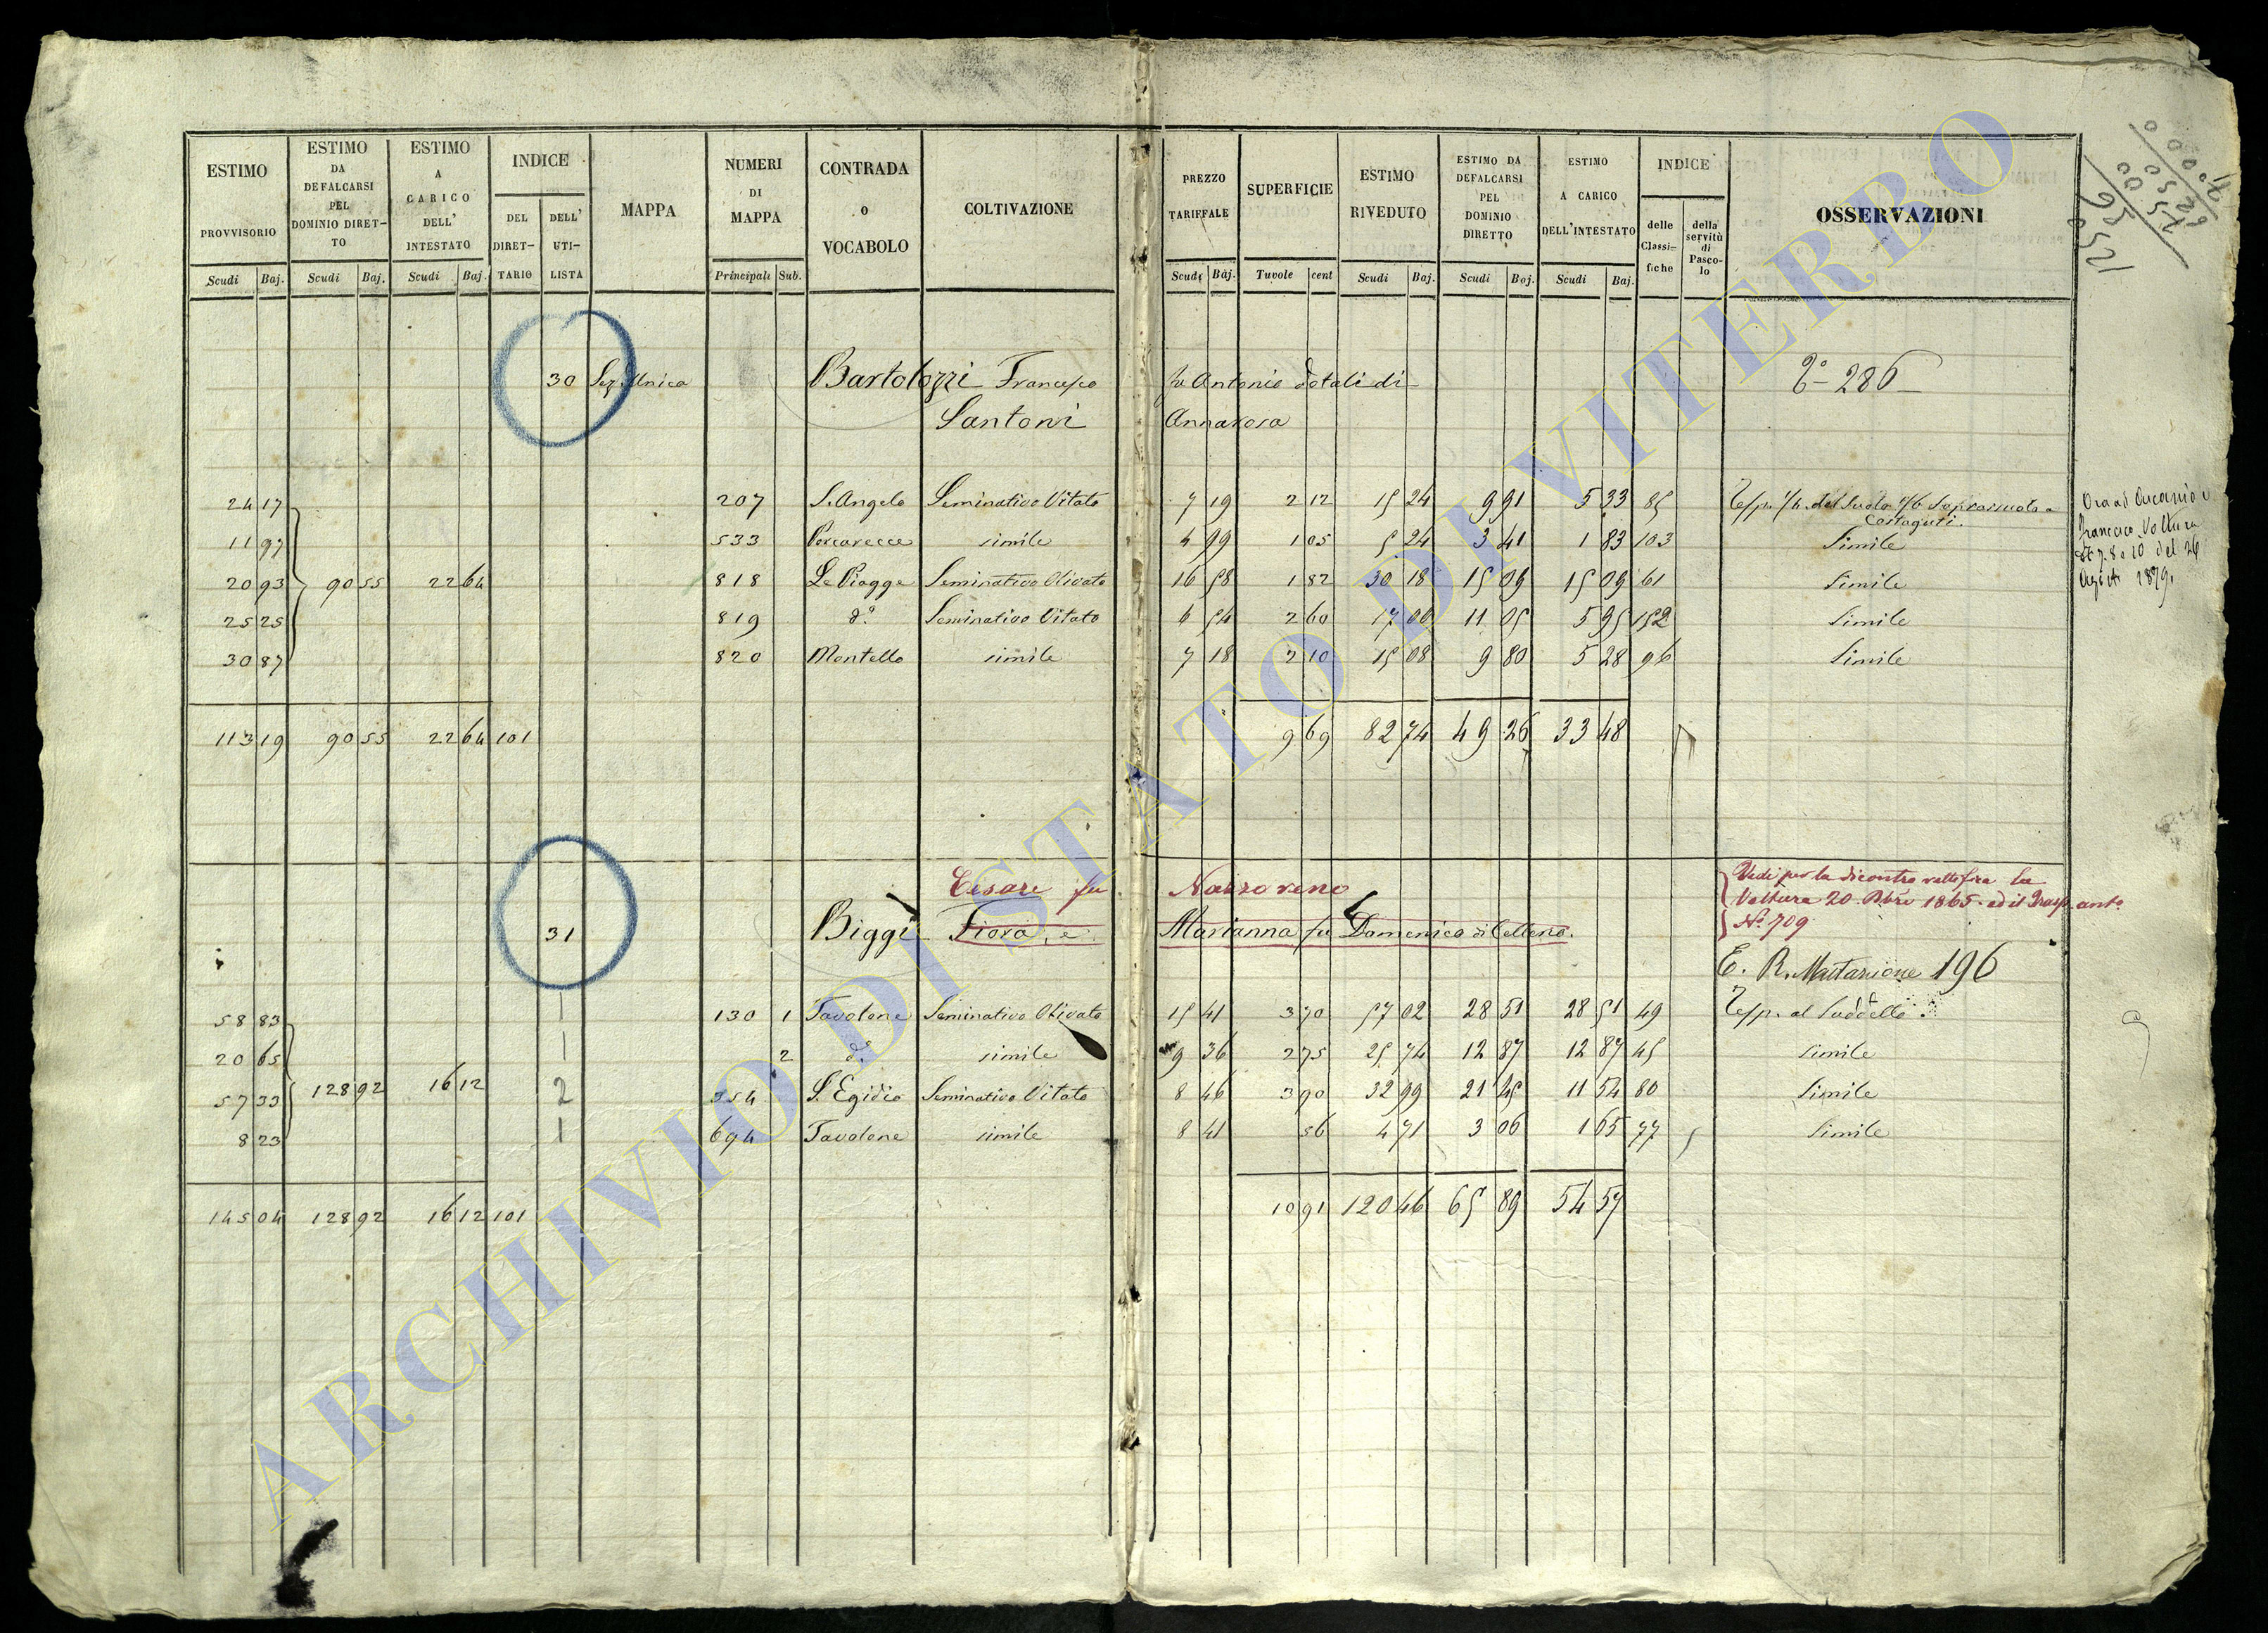 ESTIMO PROVVISORIO Scudi Baj.
ESTIMO DA DEFALCARSI PEL DOMINIO DIRETTO Scudi Baj.
ESTIMO A CARICO DELL' INTESTATO Scudi Baj.
INDICE DEL DIRETTARIO DELL' UTILISTA
MAPPA
NUMERI DI MAPPA Principali Sub.
CONTRADA o VOCABOLO
COLTIVAZIONE
PREZZO TARIFFALE Scudi Baj.
SUPERFICIE Tavole cent
ESTIMO RIVEDUTO Scudi Baj.
ESTIMO DA DEFALCARSI PEL DOMINIO DIRETTO Scudi Baj.
ESTIMO A CARICO DELL'INTESTATO Scudi Baj.
INDICE delle Classifiche della servitù di Pascolo
OSSERVAZIONI
30 Sez. Unica Bartolozzi Francesco fu Antonio dotali di 286
Santoni Annarosa
24 17 207 S. Angelo Seminativo Vitato 7 19 2 12 15 24 9 91 5 33 85 del Suolo Soprasuolo a Costaguti.
11 97 533 Porcarecce simile 4 99 1 05 5 24 3 41 1 83 103 Simile
20 93 90 55 22 64 818 Le Piagge Seminativo Olivato 16 58 1 82 30 18 15 09 15 09 61 Simile
25 25 819 d.° Seminativo Vitato 6 54 2 60 17 00 11 05 5 95 152 Simile
30 87 820 Montello simile 7 18 2 10 15 08 9 80 5 28 96 Simile
Francesco Voltura
1879.
113 19 90 55 22 64 101 9 69 82 74 49 26 33 48
Cesare fu Nazzareno
Vedi per la
Voltura 20 1865. ed il Trasp. ant.
N.° 709
31 Biggi Fiora, e Marianna fu Domenico di Celleno.
E. R. Mutazione 196
58 83 1 130 1 Tavolone Seminativo Olivato 15 41 3 70 57 02 28 51 28 51 49 Resp. al Suddetto
20 65 1 2 d.° simile 9 36 2 75 25 74 12 87 12 87 45 simile
57 33 128 92 16 12 2 354 S. Egidio Seminativo Vitato 8 46 3 90 32 99 21 45 11 54 80 Simile
8 23 1 694 Tavolone simile 8 41 56 4 71 3 06 1 65 77 Simile
145 04 128 92 16 12 101 10 91 120 46 65 89 54 57
ARCHIVIO DI STATO DI VITERBO